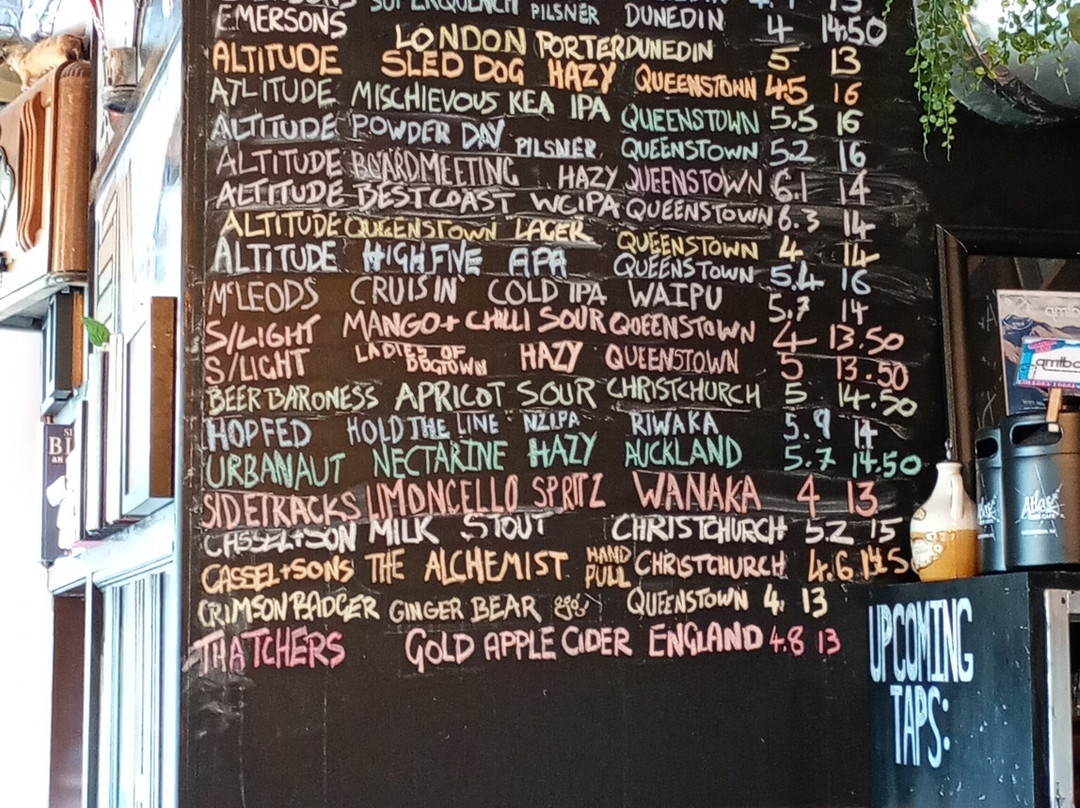 SUPERQUENCH PILSNER
EMERSONS DUNEDIN 4 14.50
LONDON PORTER DUNEDIN 5 13
ALTITUDE SLED DOG HAZY QUEENSTOWN 4.5 16
ALTITUDE MISCHIEVOUS KEA IPA QUEENSTOWN 5.5 16
ALTITUDE POWDER DAY PILSNER QUEENSTOWN 5.2 16
ALTITUDE BOARDMEETING HAZY QUEENSTOWN 6.1 14
ALTITUDE BEST COAST WCIPA QUEENSTOWN 6.3 14
ALTITUDE QUEENSTOWN LAGER QUEENSTOWN 4 14
ALTITUDE HIGH FIVE APA QUEENSTOWN 5.4 16
McLEODS CRUISIN' COLD IPA WAIPU 5.7 14
S/LIGHT MANGO + CHILLI SOUR QUEENSTOWN 4 13.50
S/LIGHT LADIES OF DOGTOWN HAZY QUEENSTOWN 5 13.50
BEER BARONESS APRICOT SOUR CHRISTCHURCH 5 14.50
HOP FED HOLD THE LINE NZIPA RIWAKA 5.9 14
URBANAUT NECTARINE HAZY AUCKLAND 5.7 14.50
SIDETRACKS LIMONCELLO SPRITZ WANAKA 4 13
CASSEL+SON MILK STOUT CHRISTCHURCH 5.2 15
CASSEL+SONS THE ALCHEMIST HAND PULL CHRISTCHURCH 4.6 14.50
CRIMSON BADGER GINGER BEAR QUEENSTOWN 4. 13
THATCHERS GOLD APPLE CIDER ENGLAND 4.8 13
UPCOMING
TAPS: